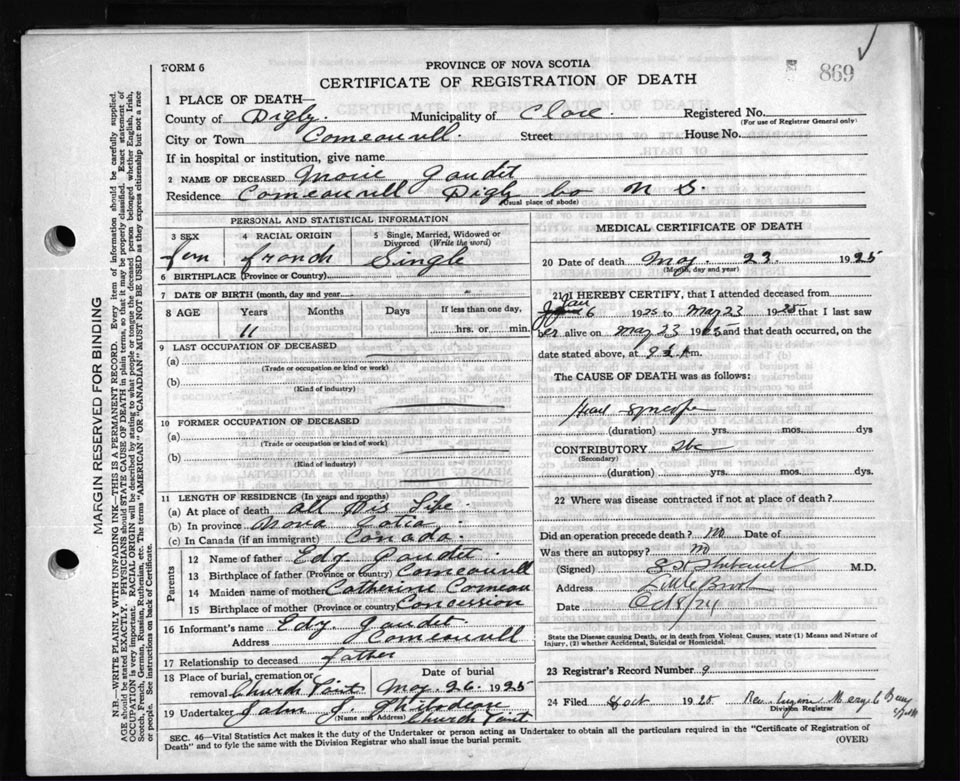 FORM 6
PROVINCE OF NOVA SCOTIA
CERTIFICATE OF REGISTRATION OF DEATH
869
1 PLACE OF DEATH—
County of Digby. Municipality of Clare. Registered No.
(For use of Registrar General only)
City or Town Comeauvill Street House No.
If in hospital or institution, give name
2 NAME OF DECEASED Marie Gaudit
Residence Comeauvill Digby Co N S.
(Usual place of abode)
PERSONAL AND STATISTICAL INFORMATION
3 SEX
fem
4 RACIAL ORIGIN
french
5 Single, Married, Widowed or Divorced (Write the word)
Single
6 BIRTHPLACE (Province or Country)
7 DATE OF BIRTH (month, day and year)
8 AGE Years Months Days If less than one day,
11 hrs. or min.
9 LAST OCCUPATION OF DECEASED
(a)
(Trade or occupation or kind or work)
(b)
(Kind of industry)
10 FORMER OCCUPATION OF DECEASED
(a)
(Trade or occupation or kind of work)
(b)
(Kind of industry)
11 LENGTH OF RESIDENCE (In years and months)
(a) At place of death all His Life.
(b) In province Nova Cotia.
(c) In Canada (if an immigrant) Canada.
Parents
12 Name of father Edy Gaudit.
13 Birthplace of father (Province or country) Comeauvill
14 Maiden name of mother Catherine Comeau
15 Birthplace of mother (Province or country) Concession
16 Informant's name Edy Gaudit
Address Comeauvill
17 Relationship to deceased father
18 Place of burial, cremation or removal Church Point.
Date of burial
May. 26. 1925
19 Undertaker John J. Thibodeau
(Name and Address) Church Point
MEDICAL CERTIFICATE OF DEATH
20 Date of death May. 23. 1925
(Month, day and year)
21 I HEREBY CERTIFY, that I attended deceased from
Jan 6 1925 to May 23 1925 that I last saw
her alive on May 23 1925 and that death occurred, on the
date stated above, at m.
The CAUSE OF DEATH was as follows:
Heart Syncope
(duration) yrs. mos. dys
CONTRIBUTORY Tbc
(Secondary)
(duration) yrs. mos. dys.
22 Where was disease contracted if not at place of death?
Did an operation precede death? no Date of
Was there an autopsy? no
(Signed) M.D.
Address Little Brook
Date Oct 8/24
State the Disease causing Death, or in death from Violent Causes, state (1) Means and Nature of Injury, (2) whether Accidental, Suicidal or Homicidal.
23 Registrar's Record Number 9
24 Filed Oct 1925
Division Registrar
SEC. 46—Vital Statistics Act makes it the duty of the Undertaker or person acting as Undertaker to obtain all the particulars required in the "Certificate of Registration of
Death" and to fyle the same with the Division Registrar who shall issue the burial permit. (OVER)
MARGIN RESERVED FOR BINDING
N.B.—WRITE PLAINLY WITH UNFADING INK—THIS IS A PERMANENT RECORD. Every item of information should be carefully supplied.
AGE should be stated EXACTLY. PHYSICIANS should STATE CAUSE OF DEATH in plain terms, so that it may be properly classified. Exact statement of
OCCUPATION is very important. RACIAL ORIGIN will be described by stating to what people or tongue the deceased person belonged whether English, Irish,
Scotch, French, German, Russian, Ruthenian, etc. The terms "AMERICAN" OR "CANADIAN" MUST NOT BE USED as they express citizenship but not a race
or people. See instructions on back of Certificate.